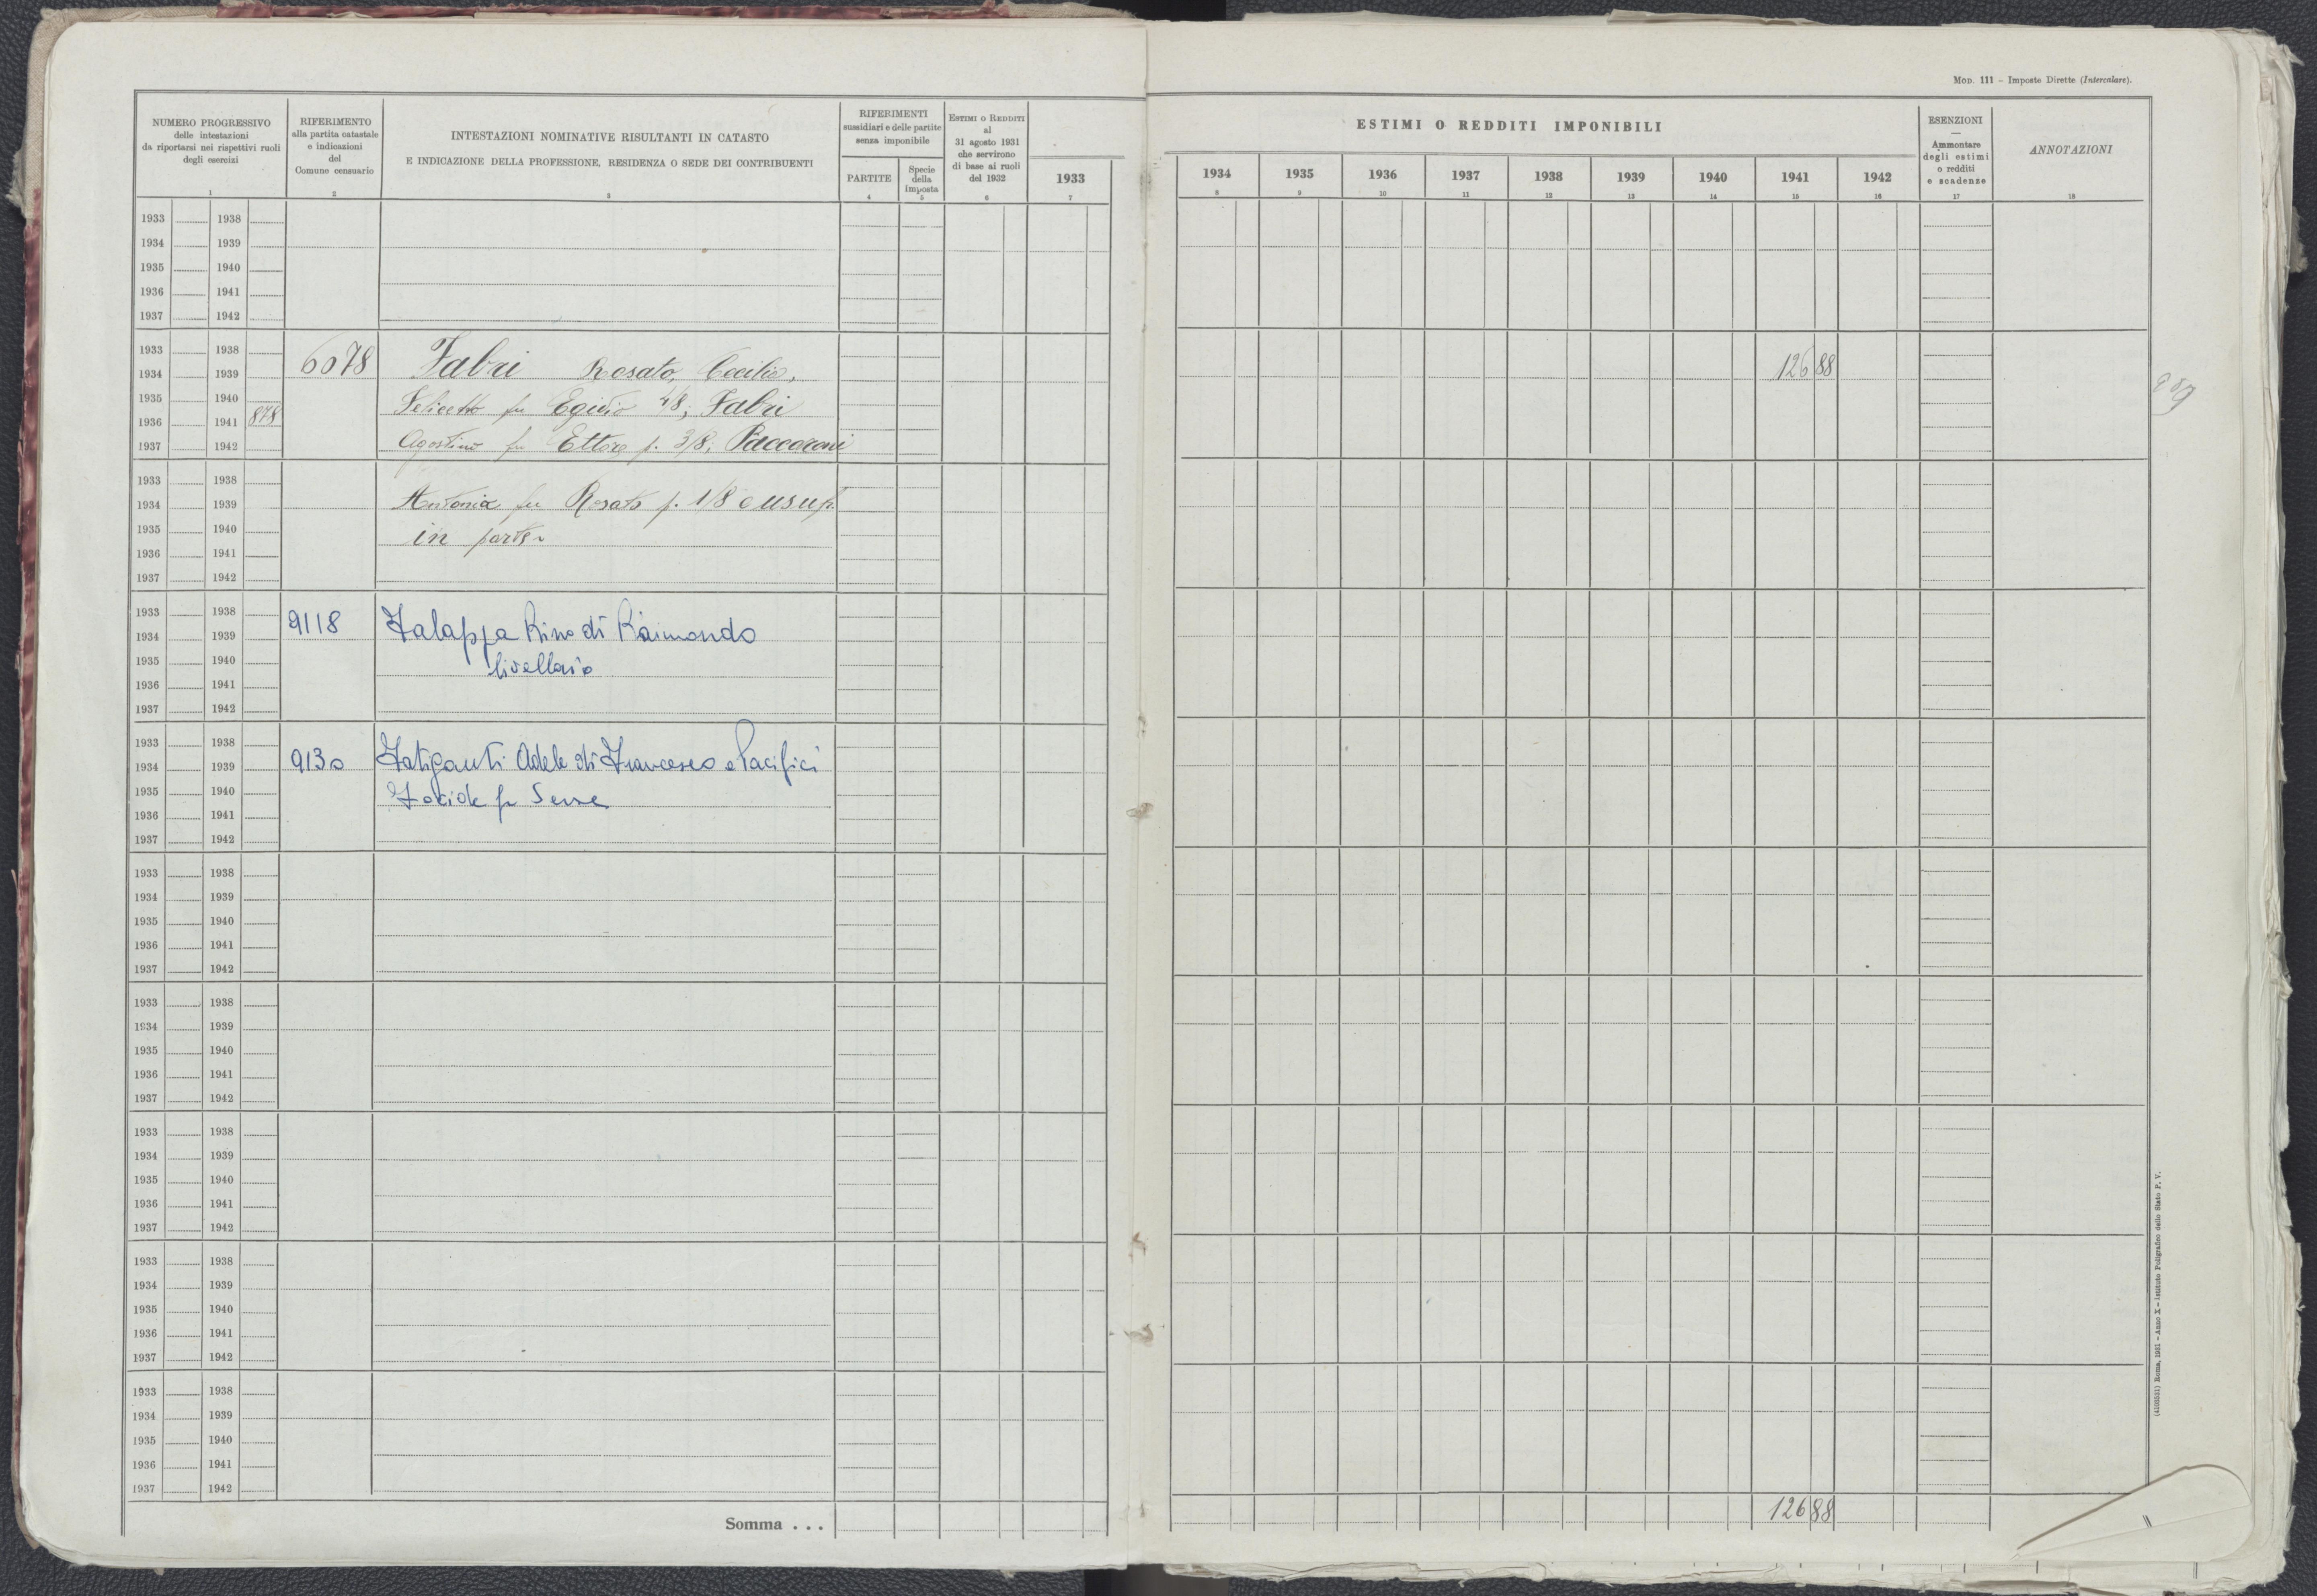 Mod. 111 – Imposte Dirette (Intercalare).
NUMERO PROGRESSIVO
delle intestazioni
da riportarsi nei rispettivi ruoli
degli esercizi
1
RIFERIMENTO
alla partita catastale
e indicazioni
del
Comune censuario
2
INTESTAZIONI NOMINATIVE RISULTANTI IN CATASTO
E INDICAZIONE DELLA PROFESSIONE, RESIDENZA O SEDE DEI CONTRIBUENTI
3
RIFERIMENTI
sussidiari e delle partite
senza imponibile
PARTITE
4
Specie
della
imposta
5
Estimi o Redditi
al
31 agosto 1931
che servirono
di base ai ruoli
del 1932
6
1933
7
ESTIMI O REDDITI IMPONIBILI
1934 1935 1936 1937 1938 1939 1940 1941 1942
8 9 10 11 12 13 14 15 16
ESENZIONI
—
Ammontare
degli estimi
o redditi
e scadenze
17
ANNOTAZIONI
18
1933 1938
1934 1939
1935 1940
1936 1941
1937 1942
1933 1938
1934 1939
1935 1940
1936 1941 878
1937 1942
6078
Fabri Rosato, Cecilia,
Felicetto fu Egidio 4/8; Fabri
Agostino fu Ettore p. 3/8; Paccaroni
126 88
1933 1938
1934 1939
1935 1940
1936 1941
1937 1942
Antonia fu Rosato p. 1/8 e usuf.
in parte
1933 1938
1934 1939
1935 1940
1936 1941
1937 1942
9118
Falappa Rino di Raimondo
livellario
1933 1938
1934 1939
1935 1940
1936 1941
1937 1942
9130
Fatiganti Adele di Francesco e Pacifici
fu
1933 1938
1934 1939
1935 1940
1936 1941
1937 1942
1933 1938
1934 1939
1935 1940
1936 1941
1937 1942
1933 1938
1934 1939
1935 1940
1936 1941
1937 1942
1933 1938
1934 1939
1935 1940
1936 1941
1937 1942
1933 1938
1934 1939
1935 1940
1936 1941
1937 1942
Somma . . .
126 88